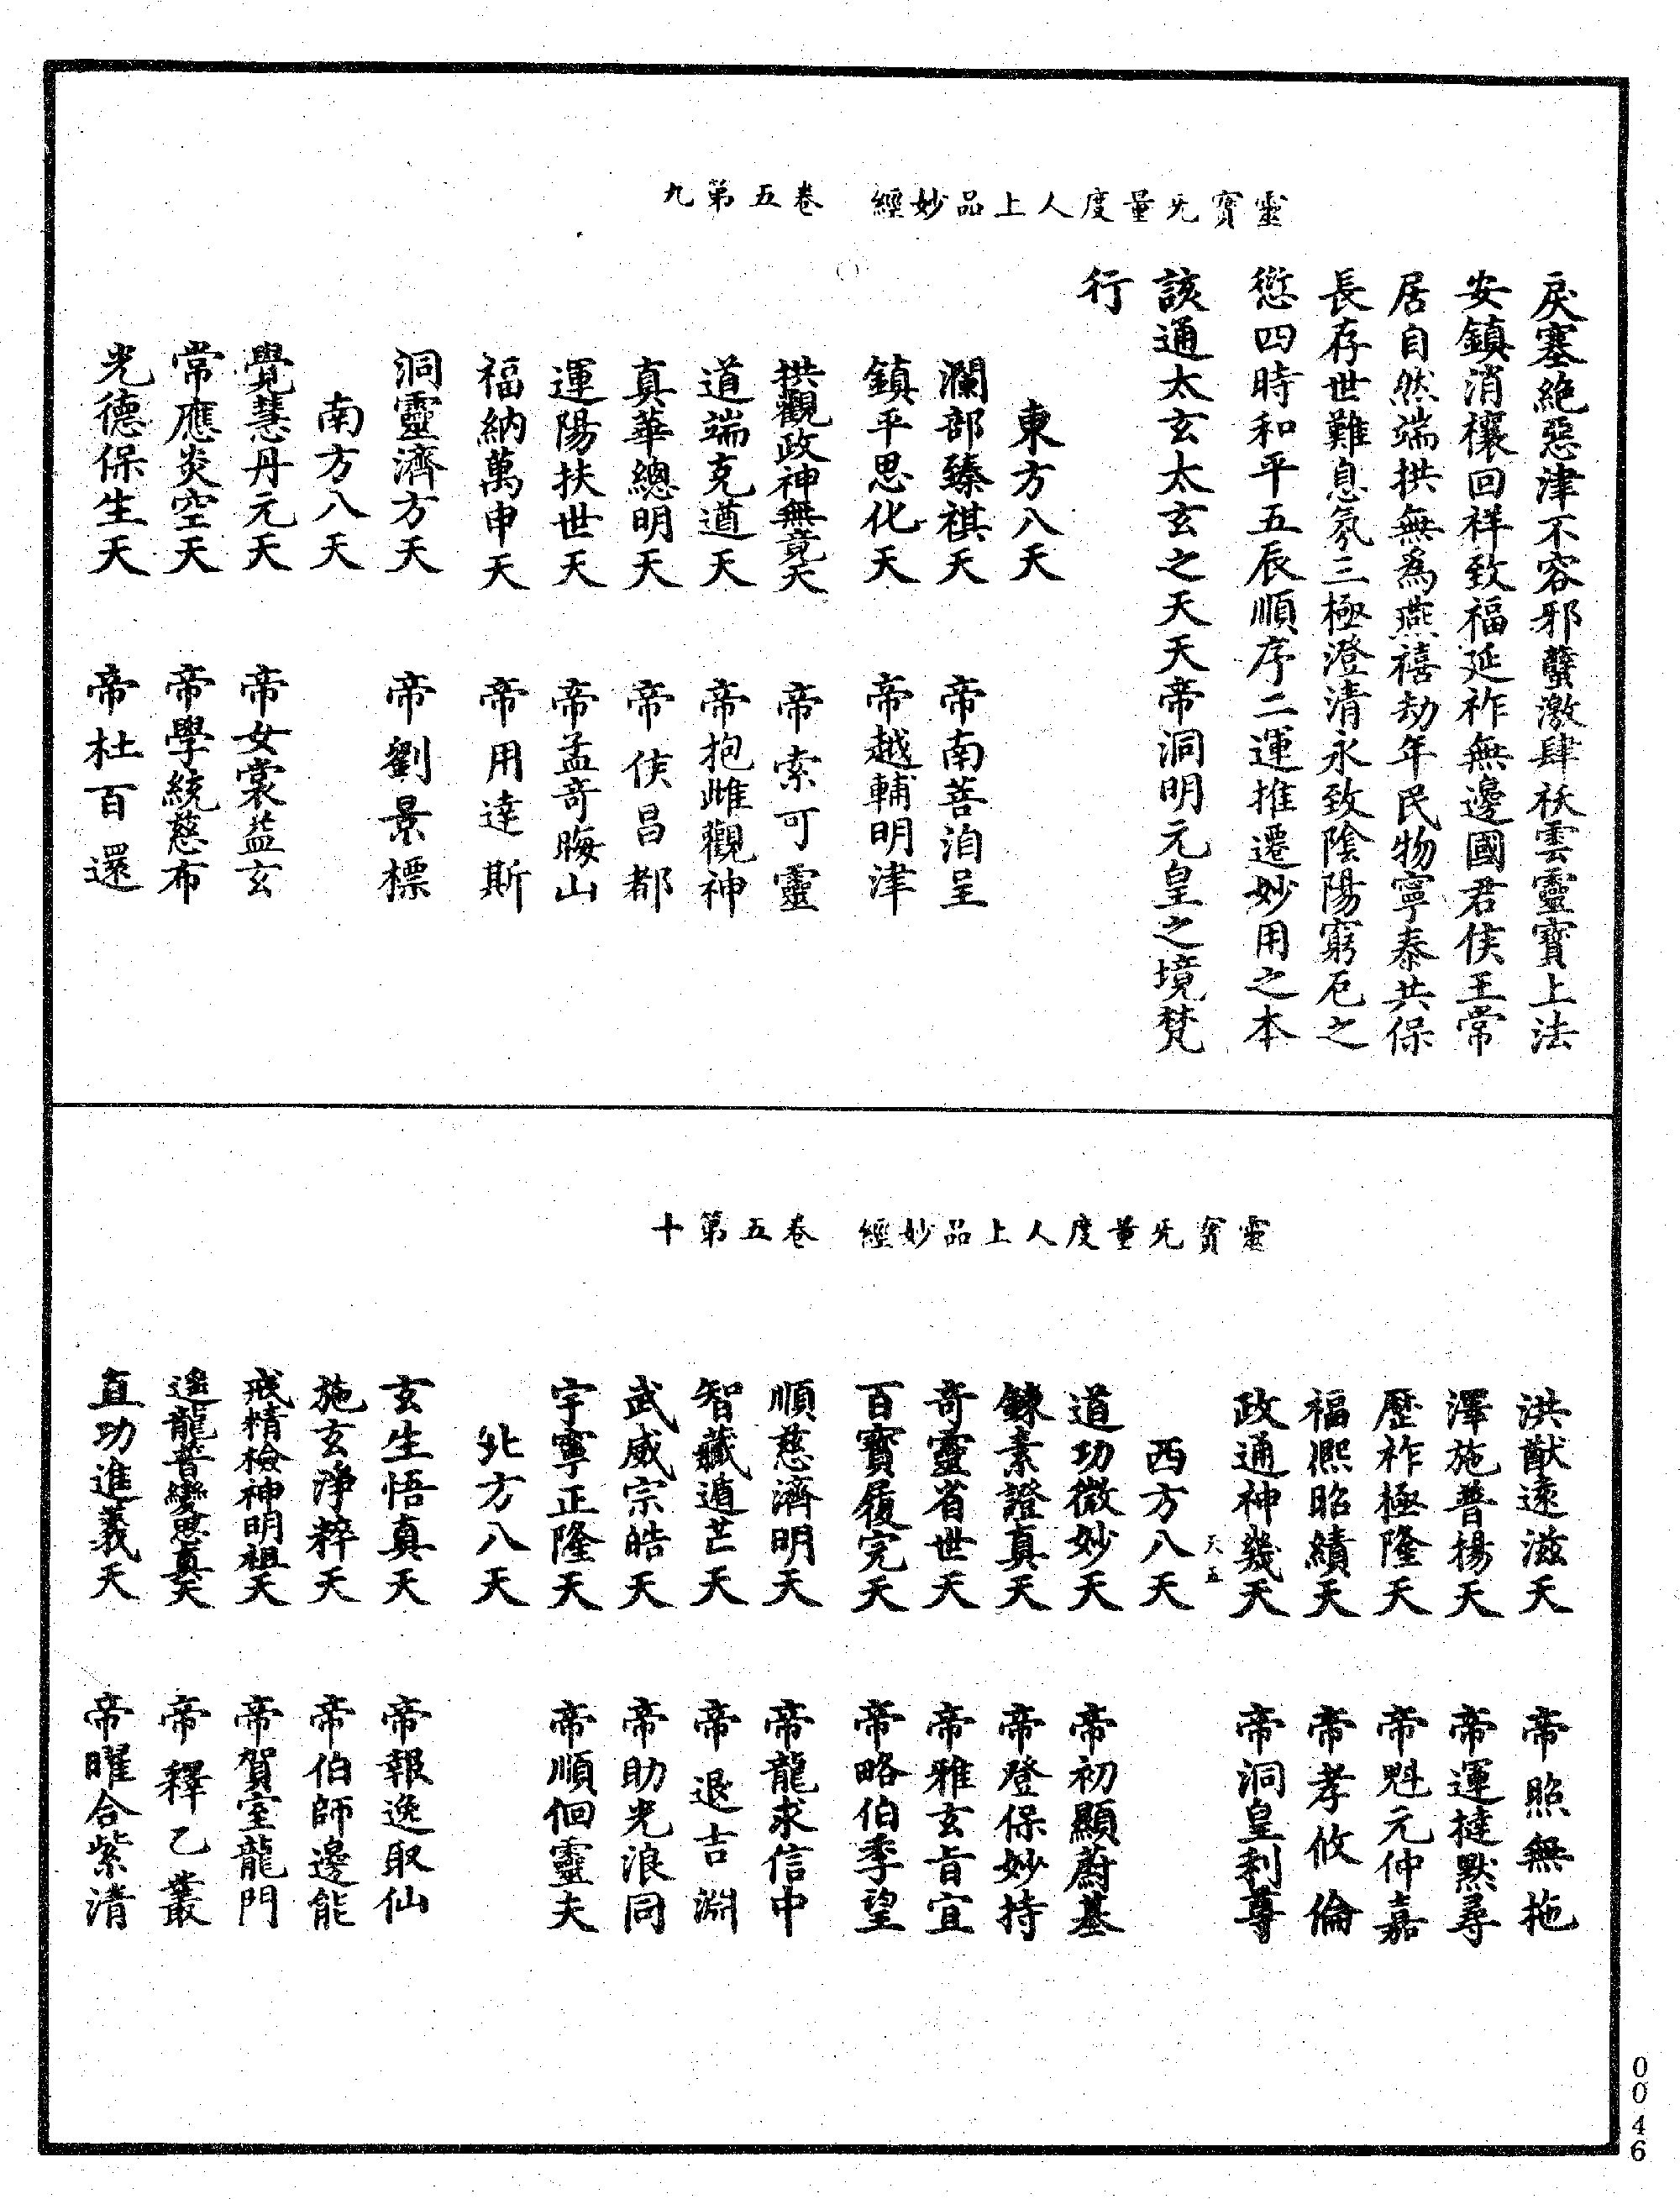 靈寳无量度人上品妙經　卷五第九
戾塞絶惡津不容邪孽激肆祅雲靈寳上法
安鎮消禳回祥致福延祚無邊國君侯王常
居自然端拱無爲燕禧劫年民物寧泰共保
長存世難息氛三極澄清永致陰陽窮厄之
愆四時和平五辰順序二運推遷妙用之本
該通太玄太玄之天天帝洞明元皇之境梵
行
東方八天
瀾部臻祺天　帝南菩洎呈
鎮平思化天　帝越輔明津
拱觀政神無竟天　帝索可靈
道端克遒天　帝抱雌觀神
真華總明天　帝侠昌都
運陽扶世天　帝孟奇晦山
福納萬申天　帝用達斯
洞靈濟方天　帝劉景標
南方八天
覺慧丹元天　帝女裳益玄
常應炎空天　帝學統慈布
光德保生天　帝杜百還
靈寳无量度人上品妙經　卷五第十
洪猷遠滋天　帝照無拖
澤施普揚天　帝運撻默尋
歷祚極隆天　帝魁元仲嘉
福熈昭績天　帝孝攸倫
政通神幾天　帝洞皇利尊
天五
西方八天
道功微妙天　帝初顯蔚基
錬素證真天　帝登保妙持
奇靈省世天　帝雅玄旨宜
百寳履完天　帝略伯季望
順慈濟明天　帝龍求信中
智藏遁芒天　帝退吉淵
武威宗皓天　帝助光浪同
宇寧正隆天　帝順佪靈夫
北方八天
玄生悟真天　帝報逸取仙
施玄淨粹天　帝伯師邊能
戒精檢神明祖天　帝賀室龍門
遙龍普變思真天　帝釋乙叢
直功進義天　帝曜合紫清
0046